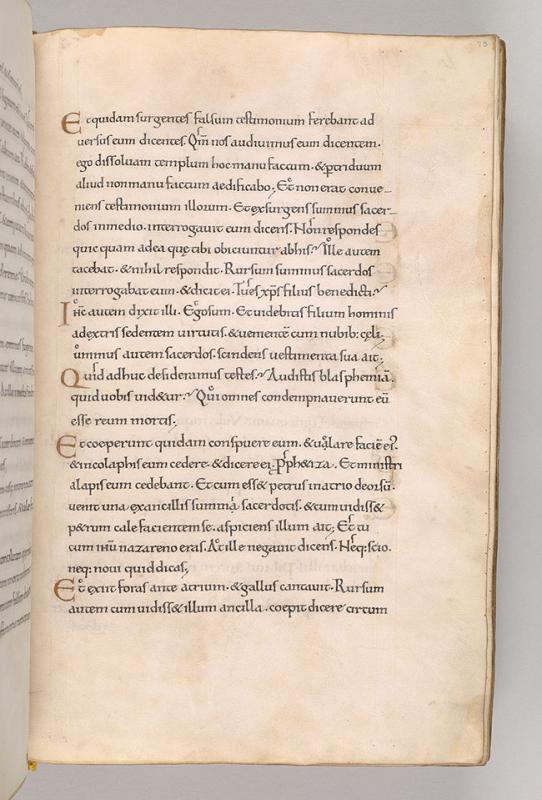 73
Et quidam surgentes falsum testimonium ferebant ad
uersus eum dicentes. Qm̄ nos audiuimus eum dicentem.
ego dissoluam templum hoc manu factum. &p̱ triduum
aliud non manu factum aedificabo; Et non erat conue-
niens testimonium illorum. Et exsurgens summus sacer-
dos in medio. interrogauit eum dicens. Non respondes
quic quam ad ea quę tibi obiciuntur ab his? Ille autem
tacebat. & nihil respondit. Rursum summus sacerdos
interrogabat eum. & dicit ei. Tu es xp̄s filius benedicti?
Ihc̄ autem dixit illi. Ego sum. Et uidebitis filium hominis
a dextris sedentem uirtutis. & uenientē cum nubib; cęli.
Summus autem sacerdos. scindens uestimenta sua ait;
Quid adhuc desideramus testes? Audistis blasphemiā.
quid uobis uid&ur? Qui omnes condempnauerunt eū
esse reum mortis;
Et coeperunt quidam conspuere eum. & uelare faciē ei.
& in colaphis eum cedere. & dicere ei. Proph&iza. Et ministri
alapis eum cedebant. Et cum ess& petrus in atrio deorsū.
uenit una ex ancillis summi sacerdotis. & cum uidiss&
p&rum cale facientem se. aspiciens illum ait; Et tu
cum ihū nazareno eras. At ille negauit dicens. Neq; scio.
neq; noui quid dicas;
Et exiit foras ante atrium. & gallus cantauit. Rursum
autem cum uidiss& illum ancilla. coepit dicere circum